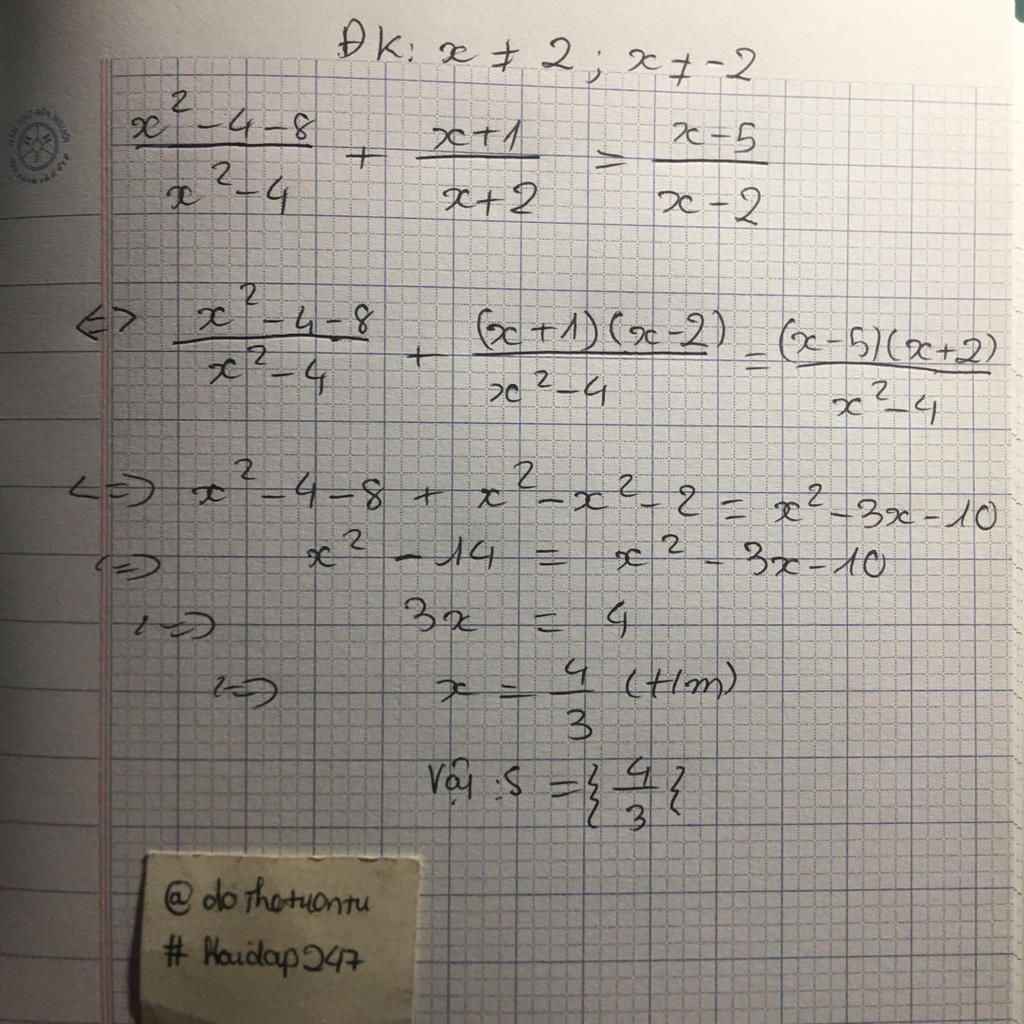 ĐK: x ≠ 2 ; x ≠ -2
\frac{x^2-4-8}{x^2-4} + \frac{x+1}{x+2} = \frac{x-5}{x-2}
<=> \frac{x^2-4-8}{x^2-4} + \frac{(x+1)(x-2)}{x^2-4} = \frac{(x-5)(x+2)}{x^2-4}
<=> x^2-4-8 + x^2-x^2-2 = x^2-3x-10
<=> x^2 - 14 = x^2 - 3x - 10
<=> 3x = 4
<=> x = \frac{4}{3} (t/m)
Vậy : S = { \frac{4}{3} }